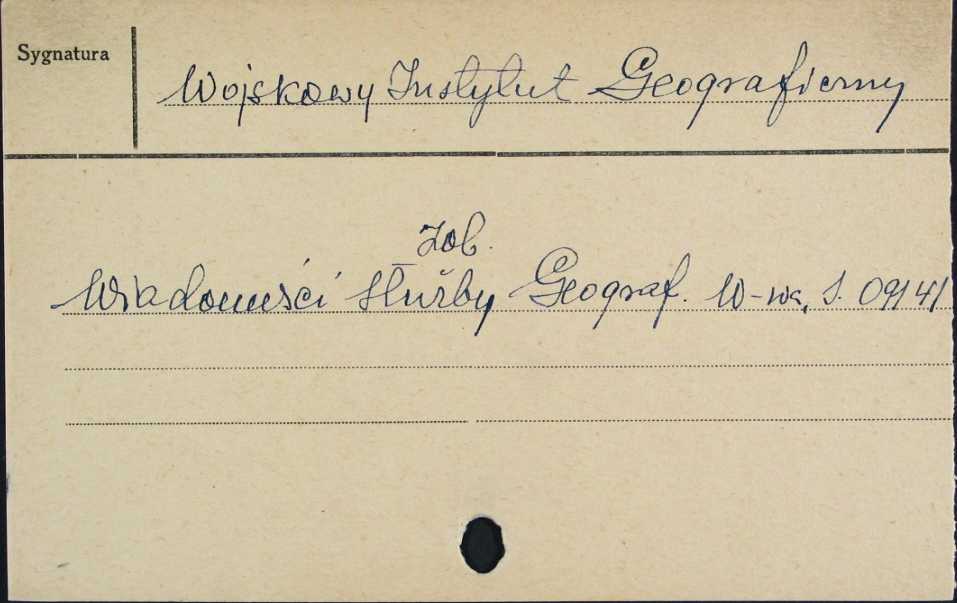 Sygnatura
Wojskowy Instytut Geograficzny
Zob.
Wiadomości Służby Geograf. W-wa, S. 09141